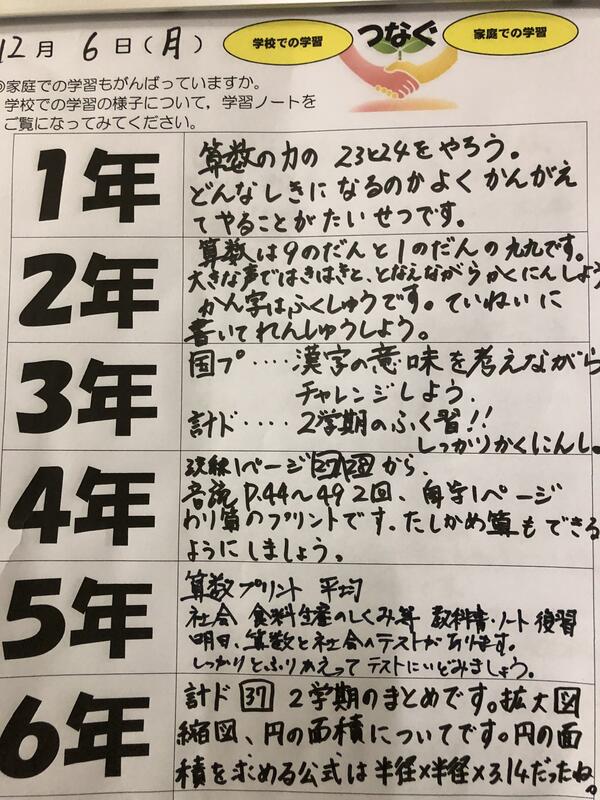 12月 6日(月)
学校での学習
つなぐ
家庭での学習
家庭での学習もがんばっていますか。
学校での学習の様子について，学習ノートを
ご覧になってみてください。
1年
算数の力の 23と24をやろう。
どんなしきになるのかよくかんがえ
てやることがたいせつです。
2年
算数は9のだんと1のだんの九九です。
大きな声ではきはきと、となえながらかくにんしよう
かん字はふくしゅうです。ていねいに
書いてれんしゅうしよう。
3年
国プ‥‥漢字の意味を考えながら
チャレンジしよう．
計ド‥‥2学期のふく習!!
しっかりかくにんし。
4年
1ページ から．
音読P.44〜49 2回、自学1ページ
わり算のプリントです。たしかめ算もできる
ようにしましょう。
5年
算数プリント 平均
社会 食料生産のしくみ等 教科書・ノート 復習
明日、算数と社会のテストがあります。
しっかりとふりかえってテストにいどみましょう。
6年
計ド 37 2学期のまとめです。拡大図
縮図、円の面積についてです。円の面
積を求める公式は半径×半径×3.14だったね。